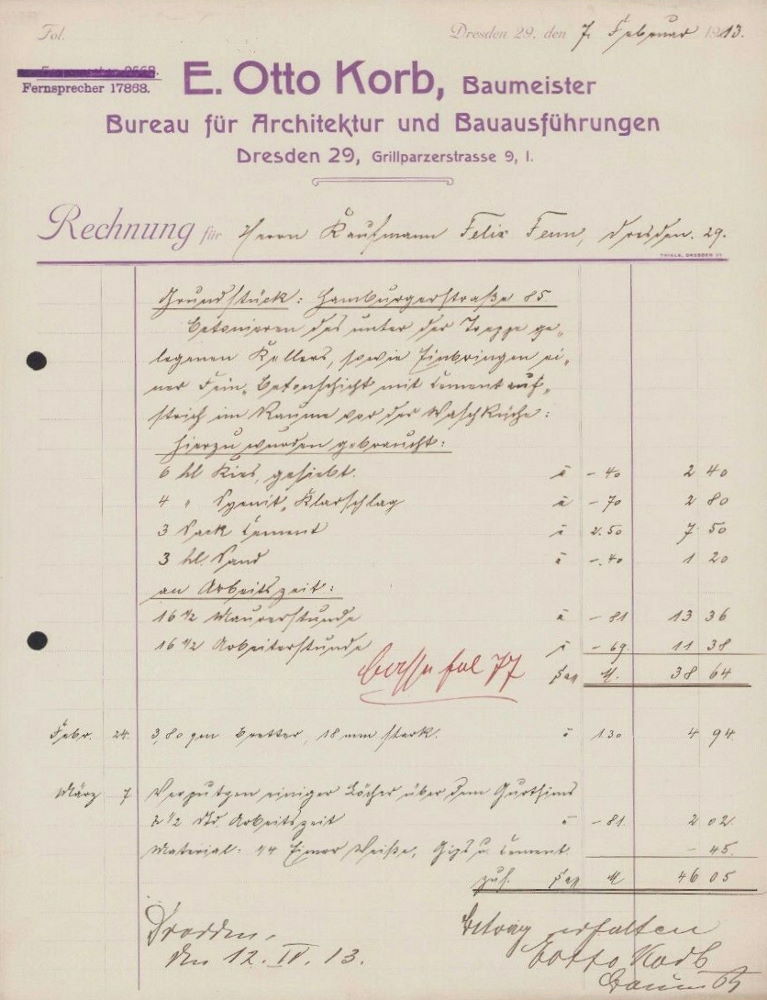 Fol.
Dresden 29, den 7. Februar 1913.
Fernsprecher 17868.
E. Otto Korb, Baumeister
Bureau für Architektur und Bauausführungen
Dresden 29, Grillparzerstrasse 9, I.
Rechnung für Herrn Kaufmann Felix Fenn, Dresden. 29.
THIELE, DRESDEN
Grundstück: Hamburgerstraße 85.
Betonieren des unter der Treppe ge-
legenen Kellers, sowie Einbringen ei-
ner Fein-Betonschicht mit Cementauf-
strich im Raume vor der Waschküche:
Hierzu wurden gebraucht:
6 hl Kies, gesiebt. à -40 2 40
4 " Syenit-Klarschlag à -70 2 80
3 Sack Cement à 2.50 7 50
3 hl. Sand à -.40 1 20
an Arbeitszeit:
16 1/2 Maurerstunde à -81 13 36
16 1/2 Arbeiterstunde à -69. 11 38
Sa M. 38 64
Cassa fol 77
Febr. 24. 3,80 qm Bretter, 18 mm stark. à 130 4 94
März 7 Verputzen einiger Löcher über dem Gurtsims
2 1/2 Std. Arbeitszeit à -81. 2 02.
Material: 1/4 Eimer Weiße, Gips u. Cement. - 45.
zus. M 46 05
Dresden,
den 12. IV. 13.
Betrag erhalten
E Otto Korb
Baumstr